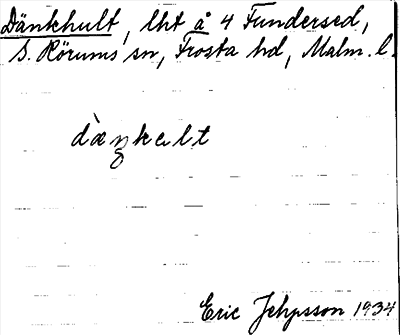 Dänkhult, lht å 4 Fundersed,
S. Rörums sn, Frosta hd, Malm. l.
dàŋkɐlt
Eric Jepsson 1934